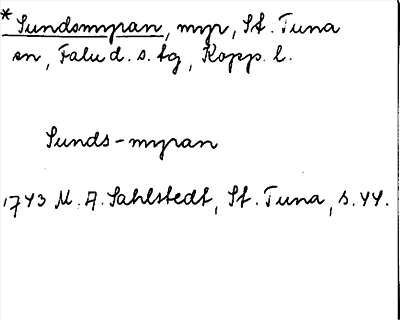 *Sundsmyran, myr, St. Tuna
sn, Falu d. s. tg, Kopp. l.
Sunds-myran
1743 M. A. Sahlstedt, St. Tuna, s. 44.